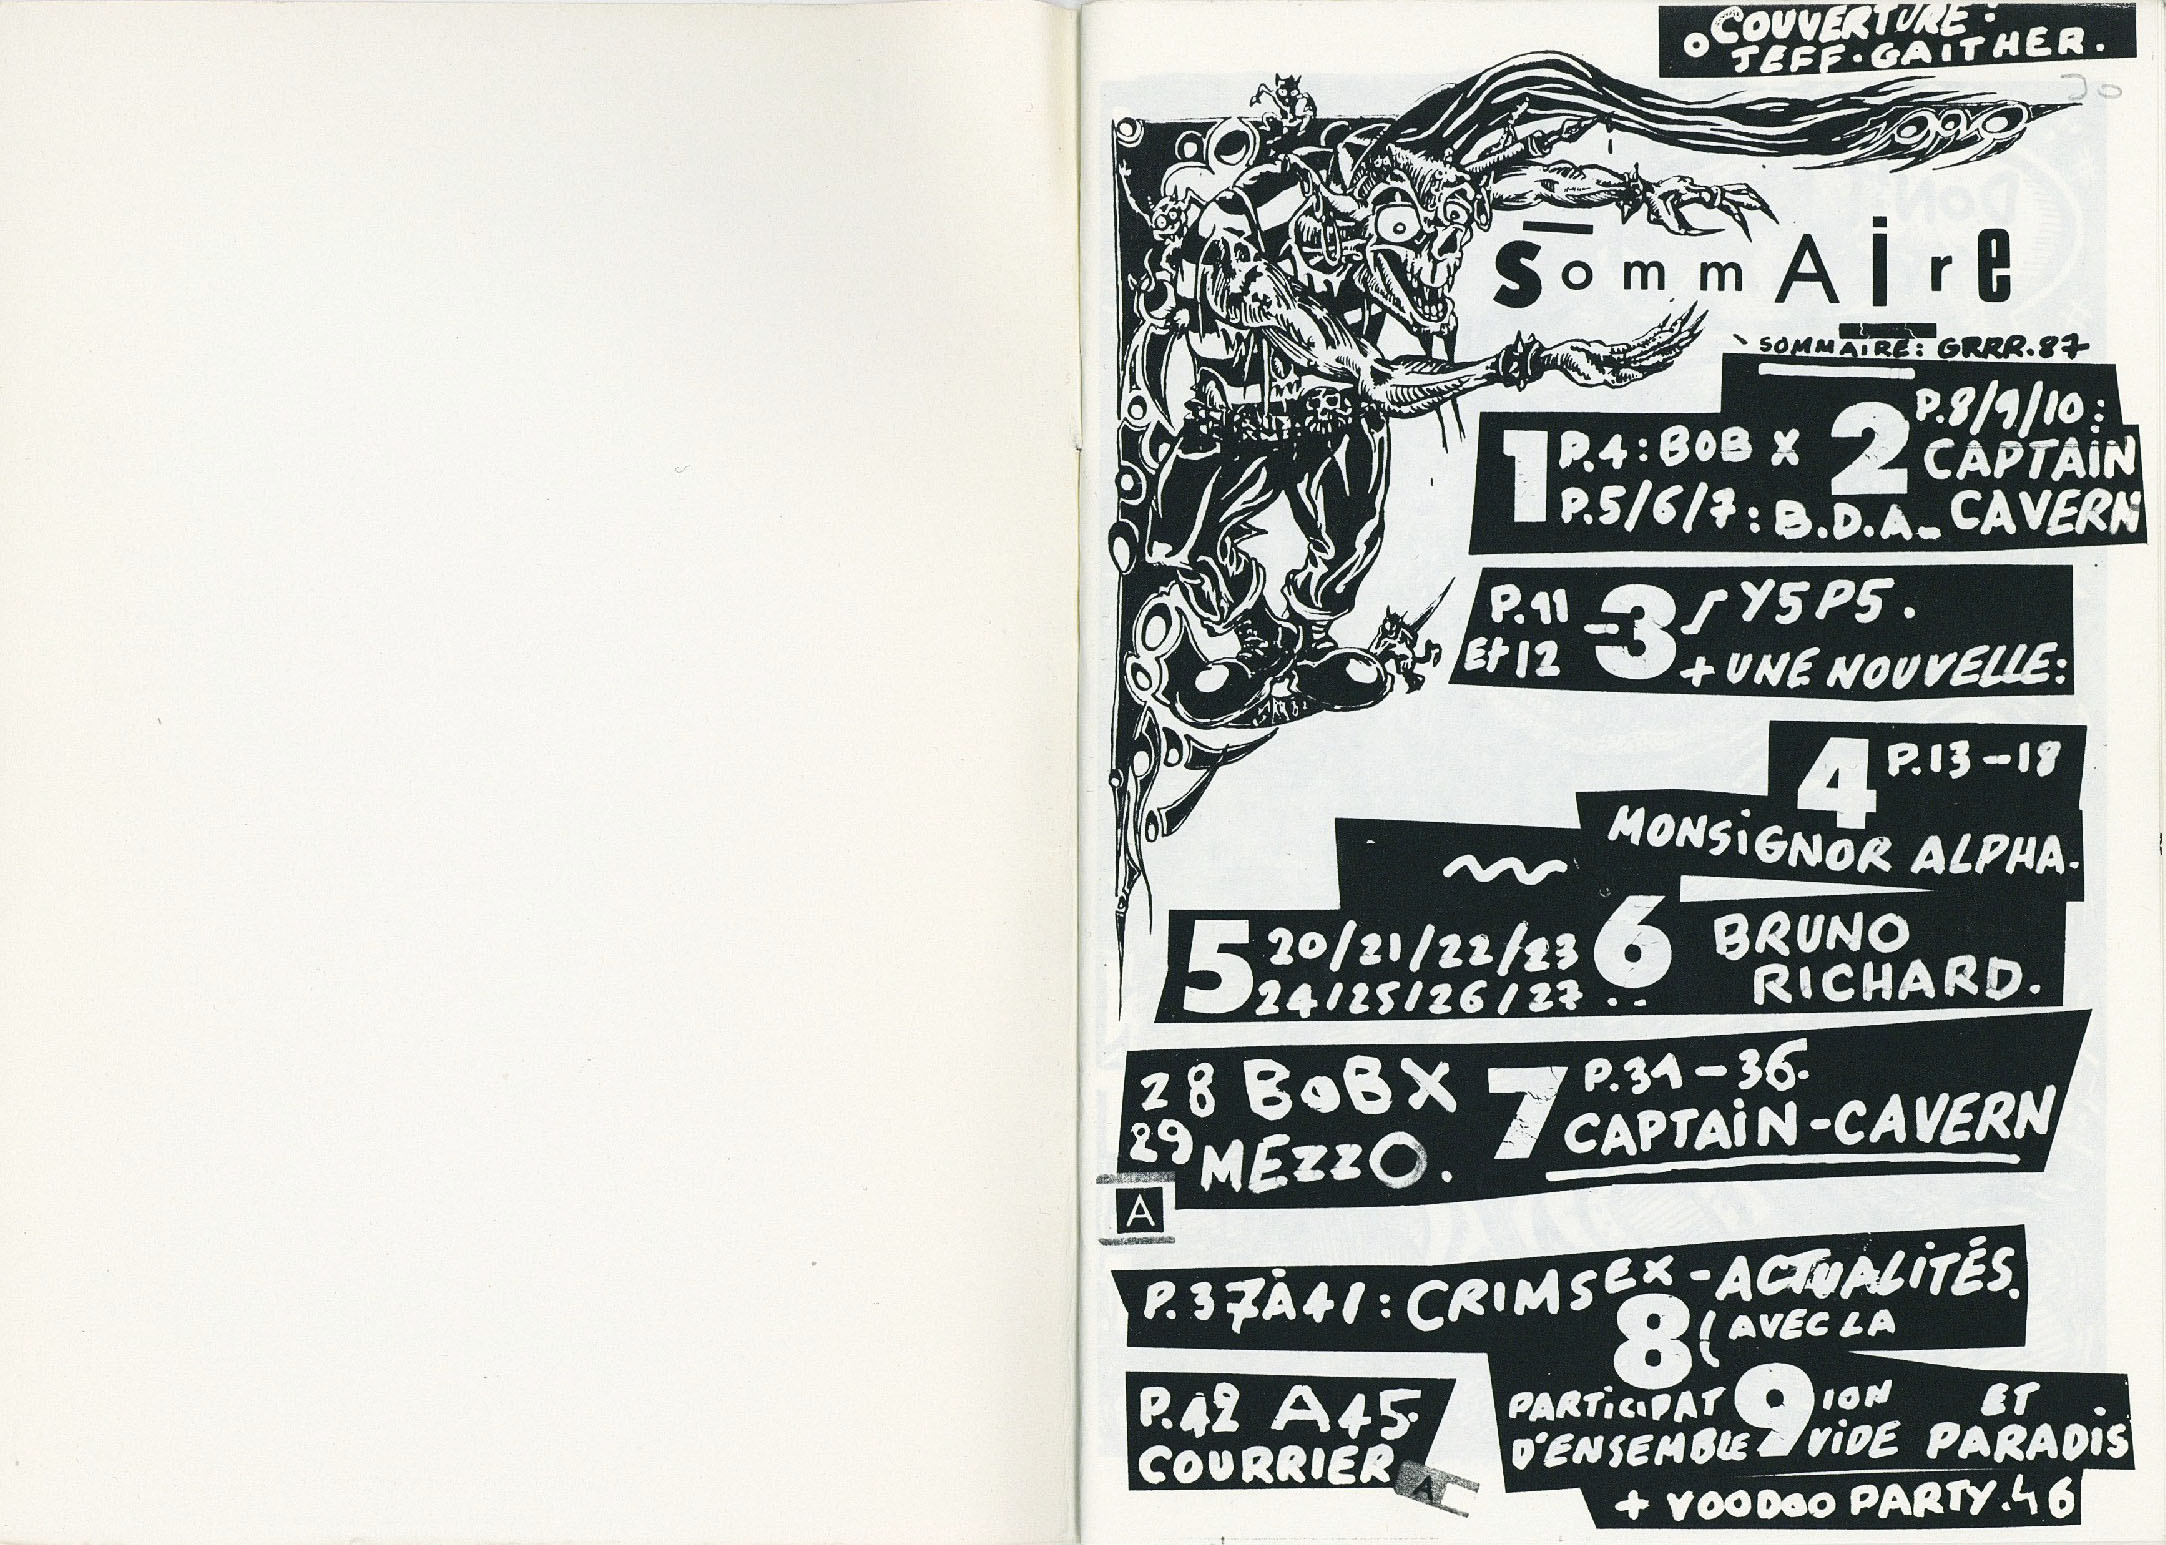 COUVERTURE:
JEFF-GAITHER.
30
SommAire
SOMMAIRE: GRRR.87
1 P.4: BOB X
P.5/6/7: B.D.A-
2 P.8/9/10:
CAPTAiN
CAVERN
P.11
Et 12
3 Y5P5.
+ UNE NOUVELLE:
4 P.13-18
MONSiGNOR ALPHA.
5 20/21/22/23
24/25/26/27..
6 BRUNO
RICHARD.
28 BOBX
29 MEZZO.
7 P.31-36.
CAPTAiN-CAVERN
A
P.37À41: CRIMSEX-ACTUALiTÉS.
8 (AVEC LA
PARTiCIPAT 9 ION ET
D'ENSEMBLE ViDE PARADiS
P.42 A 45.
COURRIER
A
+ VOODOO PARTY.46